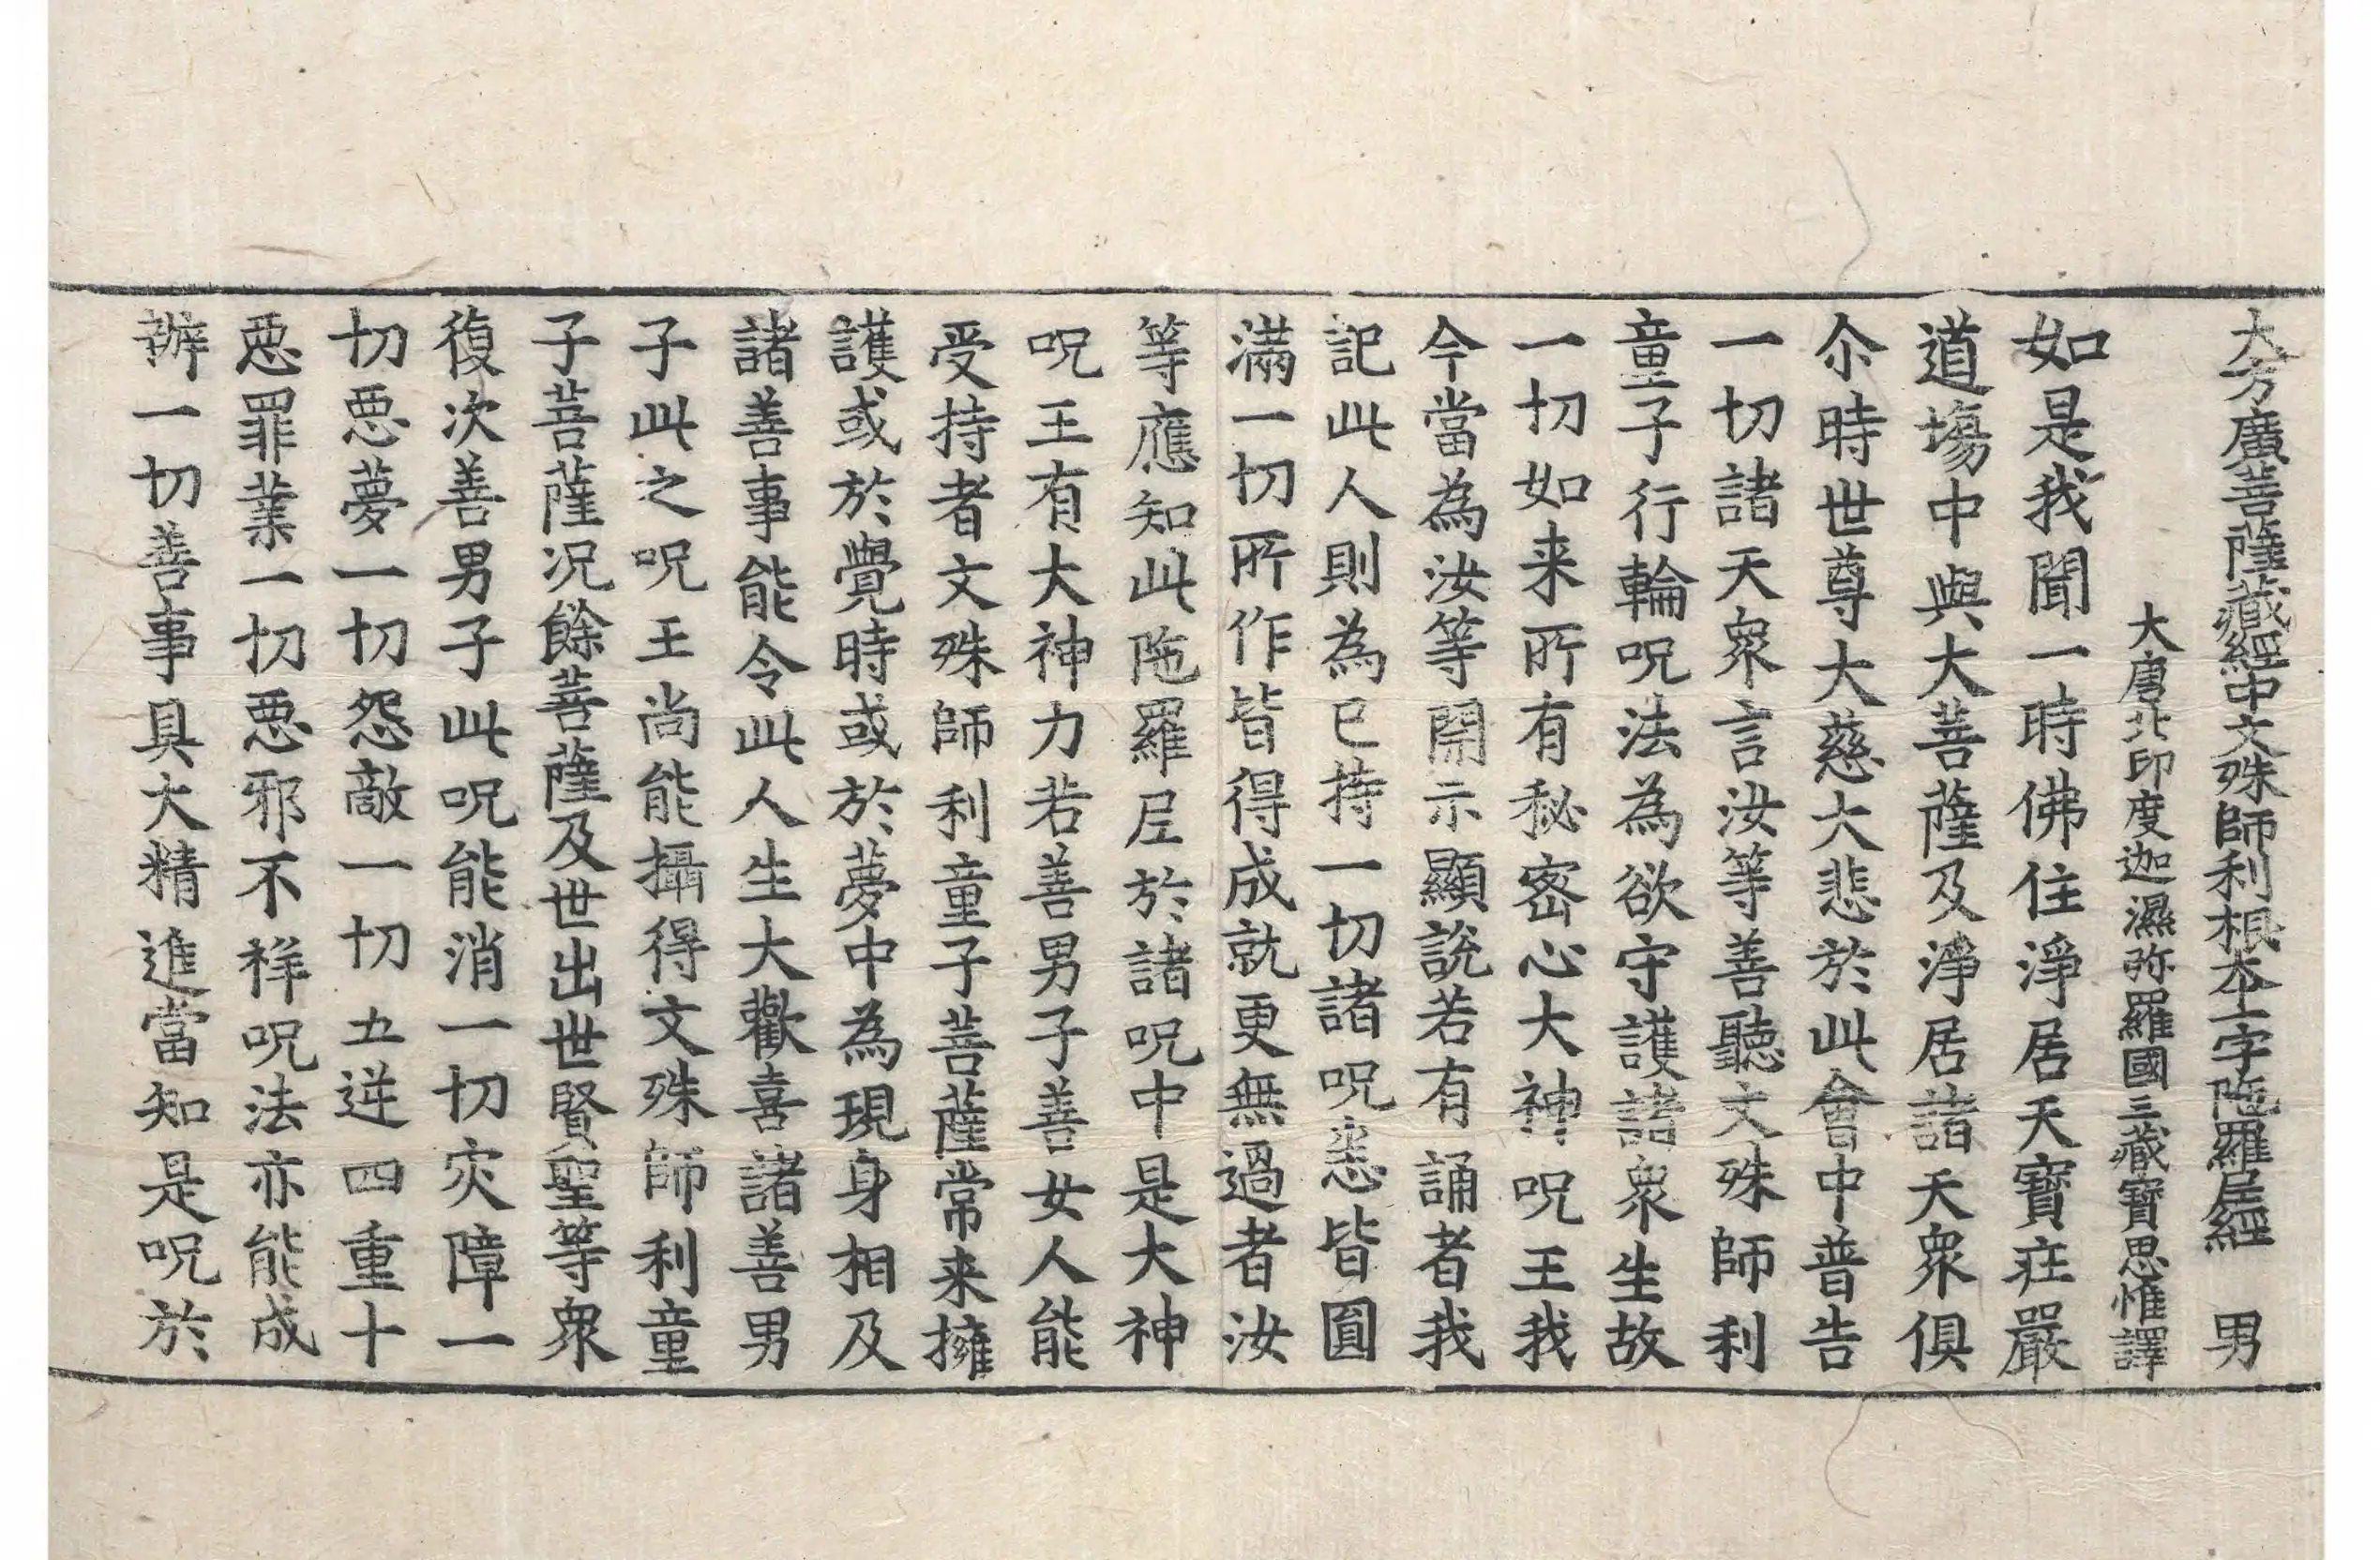 大方廣菩薩藏經中文殊師利根本一字陁羅尼經　男
大唐北印度迦濕弥羅國三藏寶思惟譯
如是我聞一時佛住淨居天寶莊嚴
道場中與大菩薩及淨居諸天衆俱
尒時世尊大慈大悲於此會中普告
一切諸天衆言汝等善聽文殊師利
童子行輪呪法為欲守護諸衆生故
一切如来所有秘密心大神呪王我
今當為汝等開示顯說若有誦者我
記此人則為已持一切諸呪悉皆圓
滿一切所作皆得成就更無過者汝
等應知此陁羅尼於諸呪中是大神
呪王有大神力若善男子善女人能
受持者文殊師利童子菩薩常来擁
護或於覺時或於夢中為現身相及
諸善事能令此人生大歡喜諸善男
子此之呪王尚能攝得文殊師利童
子菩薩况餘菩薩及世出世賢聖等衆
復次善男子此呪能消一切灾障一
切惡夢一切怨敵一切五逆四重十
惡罪業一切惡邪不祥呪法亦能成
辦一切善事具大精進當知是呪於